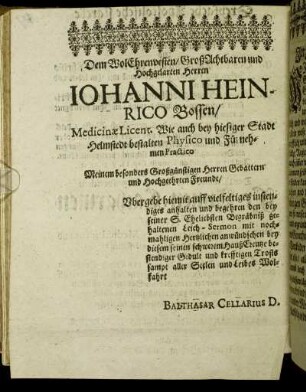 Dem WolEhrenvesten/ GroßAchtbaren und
Hochgelarten Herren
IOHANNI HEIN-
RICO Bossen/
Medicinæ Licent. Wie auch bey hiesiger Stadt
Helmstedt bestalten Physico und Fürneh-
men Practico
Meinem besonders Großgünstigen Herren Gevattern
und Hochgeehrten Freunde/
Vbergebe hiemit auff vielfeltiges insten-
diges anhalten und begehren den bey
seiner S. Eheliebsten Begräbniß ge-
haltenen Leich-Sermon mit noch-
mahligen Hertzlichen anwündschen bey
diesem seinen schweren HaußCreutze be-
stendiger Gedult und kräfftigen Trosts
sampt aller Seelen und Leibes Wol-
fahrt
BALTHASAR CELLARIUS D.